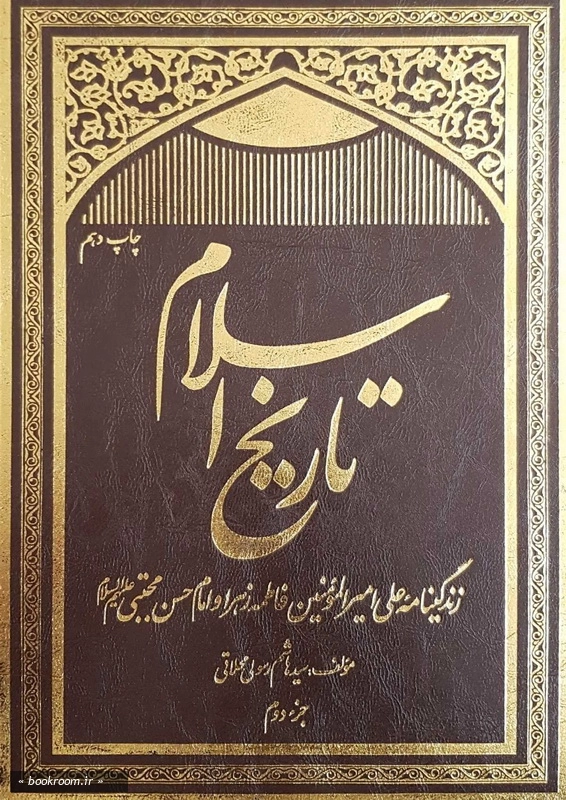 چاپ دهم
تاریخ اسلام
زندگینامه علی امیرالمؤمنین فاطمه زهرا و امام حسن مجتبی علیهم‌السلام
مؤلف: سید هاشم رسولی محلاتی
جزء دوم
« bookroom.ir »